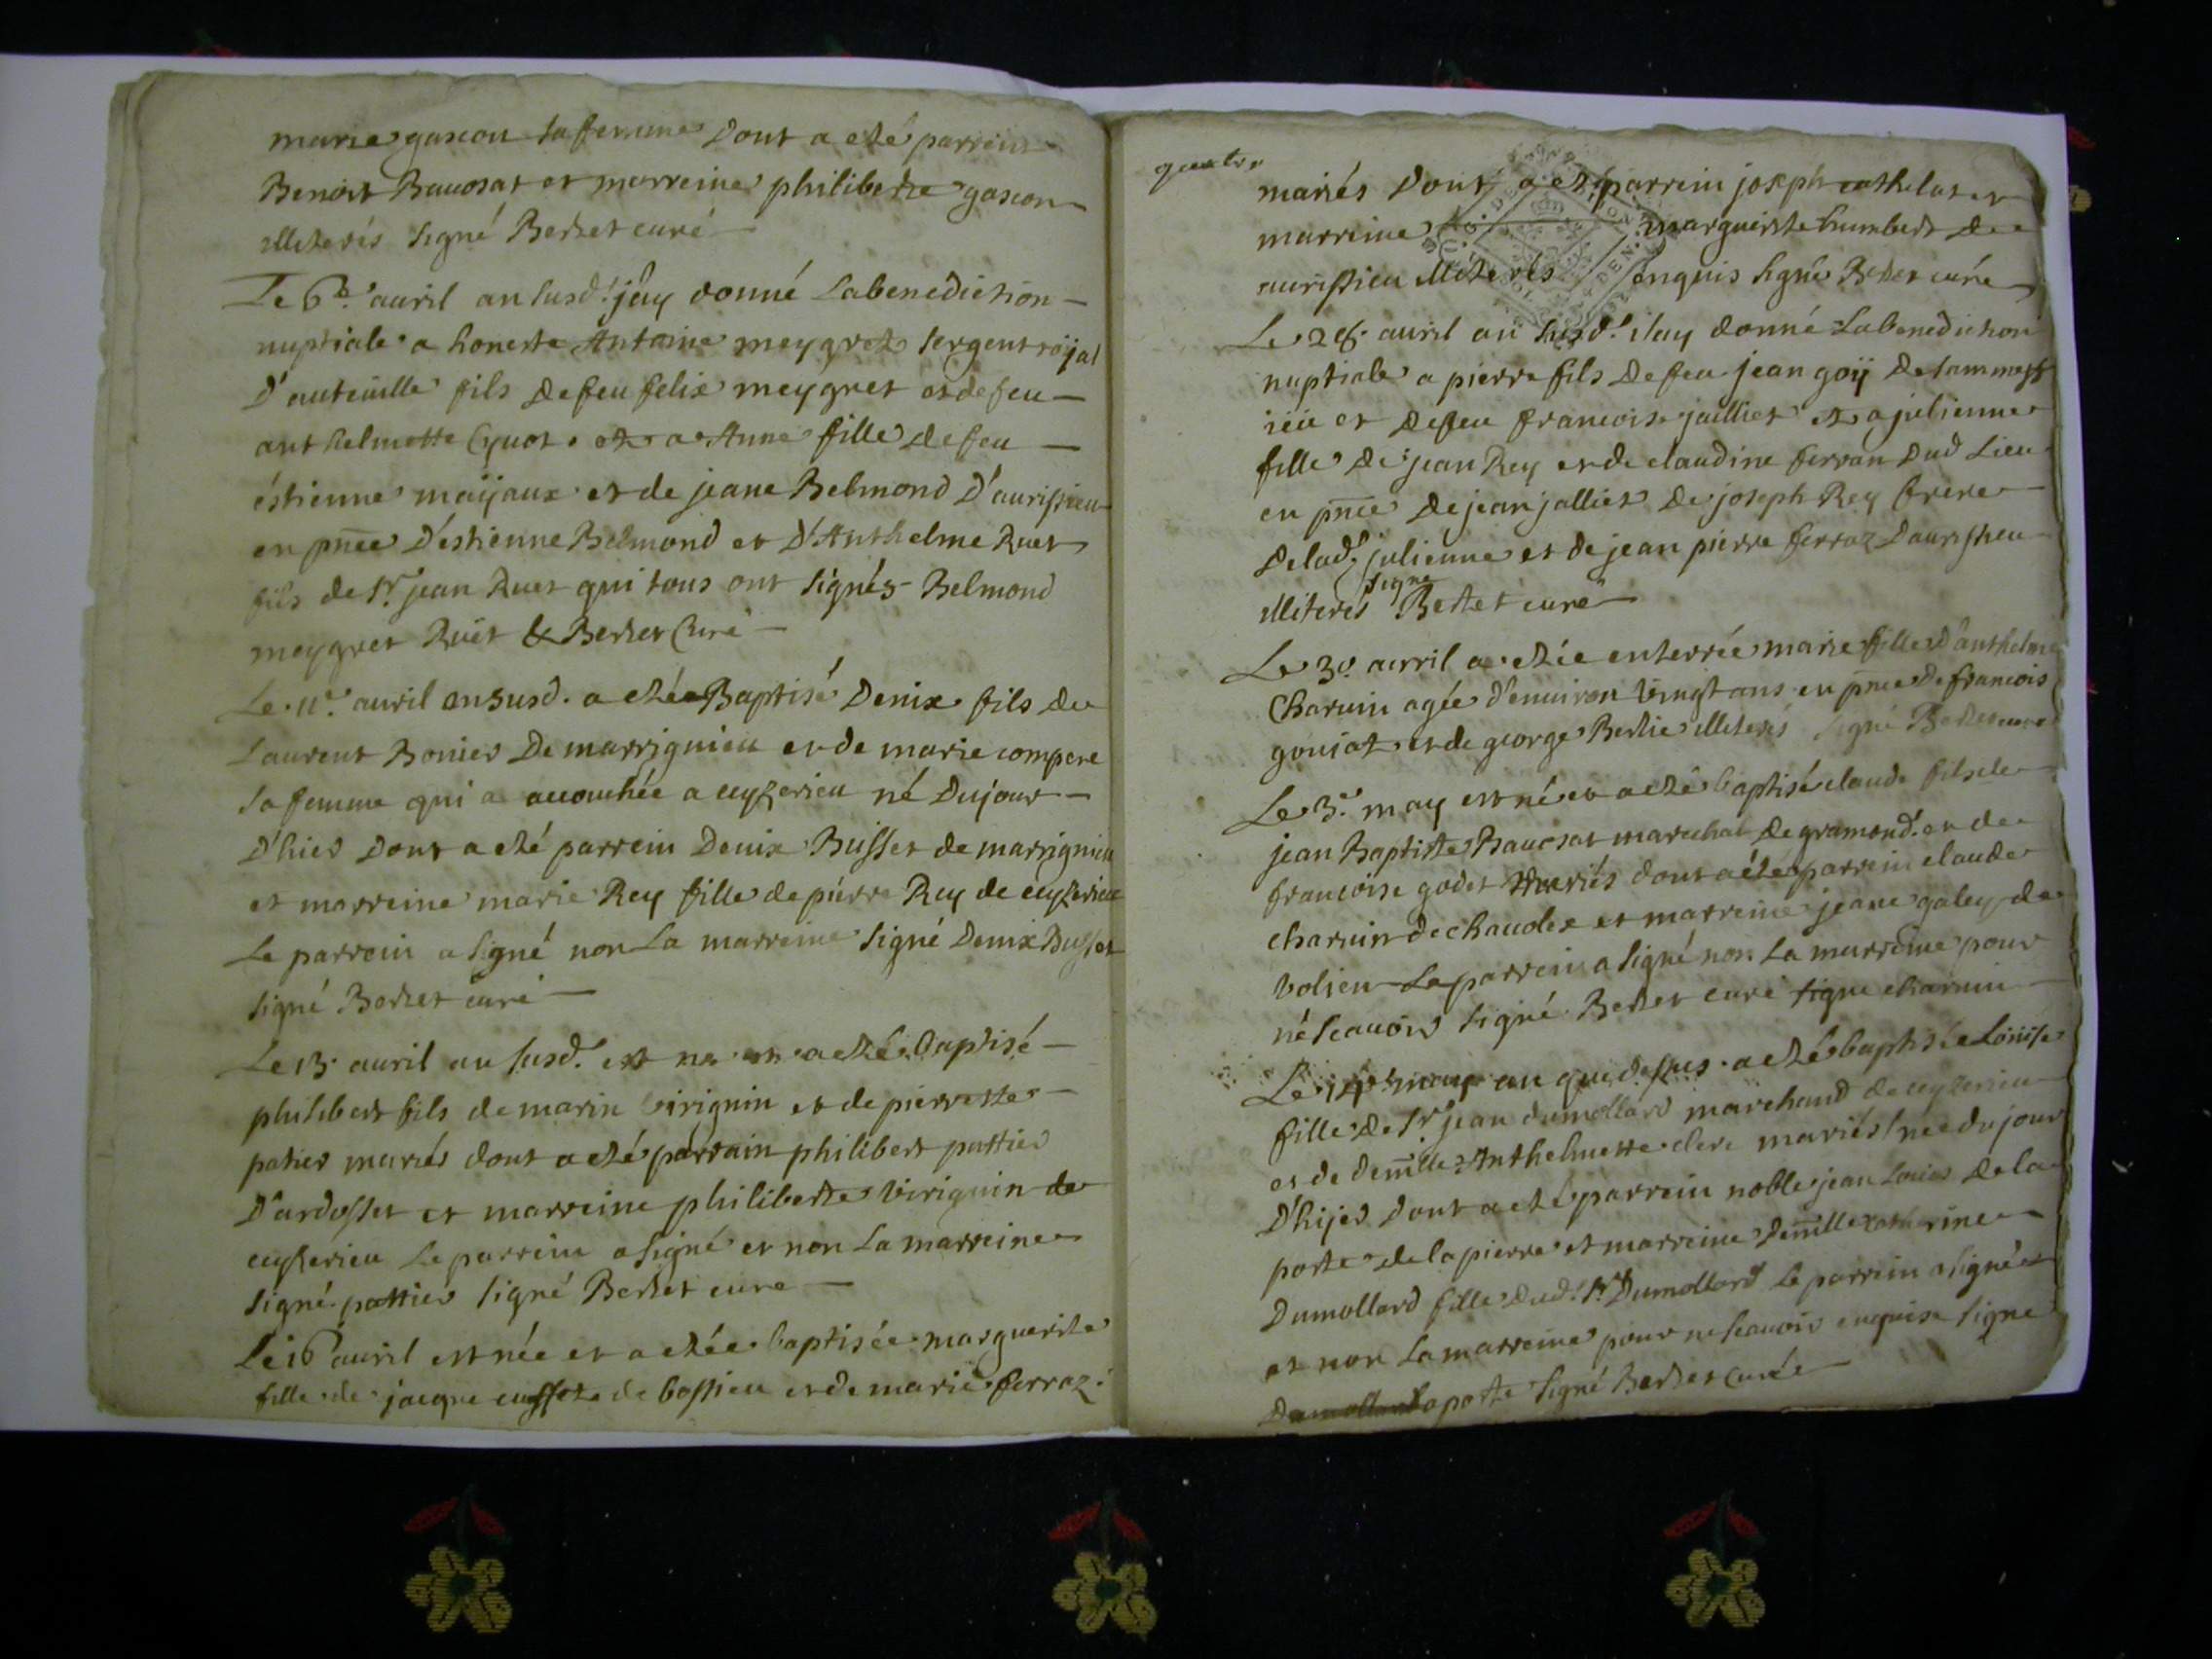 marie gascon sa femme dont a eté parrein
Benoist Baucosat et marreine philiberte gascon
illiterés signé Bertet curé
Le 6e. auril an susd.t jay donné La benediction
nuptiale a honeste Antoine meygret sergent roÿal
D'auteuille fils de feu felix meygret et de feu
anthelmette Cyuot. et a Anne fille de feu
éstienne maÿaux et de jeane Belmond D'aurissieu
en pnce D'éstienne Belmond et D'Anthelme Ruet
fils de Sr. jean Ruet qui tous ont signés Belmond
meygret Ruet & Bertet Curé
Le 11e. auril an susd. a etée Baptisé Denix fils de
Laurent Bonier De marrignieu et de marie compere
sa femme qui a acouchée a ceyzerieu né Du jour
D'hier dont a eté parrein Denix Busset de marrignieu
et marreine marie Rey fille de pierre Rey de ceyzerieu
Le parrein a signé non La marreine signé Denix Busset
signé Bertet curé
Le 13. auril an susd.t est ne et a eté Baptisé
philibert fils de marin virignin et de pierrette
patier mariés dont a eté parrain philibert pattier
D'ardosset et marreine philiberte virignin de
ceyzerieu Le parrein a signé et non La marreine
signé pattier signé Bertet cure
Le 16 auril est née et a etée baptisée marguerite
fille de jacque cusset de bossieu et de marie ferraz
quatre
mariés dont a eté parrein joseph cathelat et
marreine marguerite humbert de
aurissieu illiterés enquis signé Bertet curé
Le 28. auril an susd.t jay donné La benediction
nuptiale a pierre fils de feu jean goÿ de
et de feu francoise jailliet et a julienne
fille de jean Rey et de claudine ferran dud Lieu
en pnce de jean jalliet de joseph Rey frere
de lad.t julienne et de jean pierre ferraz d'aurissieu
illiterés signe Bertet curé
Le 30 auril a etée enterrée marie fille d'anthelme
Charuin agée d'enuiron vingt ans en pnce de francois
goujat et de george Bertie illiterés signé Bertet curé
Le 3e. may est né et a eté baptisé claude fils de
jean Baptiste Baucsat marechal de gramond. et de
francoise godet mariés dont a eté parrein claude
charuin de chaudex et marreine jeane galey de
volien Le parrein a signé non La marreine pour
né scauoir signé Bertet curé signe charuin
Le 14e may an que dessus a eté baptisée Loüise
fille de Sr jean dumollard marchand de ceyzerieu
et de demlle Anthelmette clerc mariés née du jour
D'hijer dont a eté parrein noble jean Louis de la
porte de la pierre et marreine Demlle catherine
Dumollard fille dud. Sr. Dumollard Le parrein a signé
et non La marreine pour ne scauoir enquise signe
Dumollard laporte signé Bertet curée